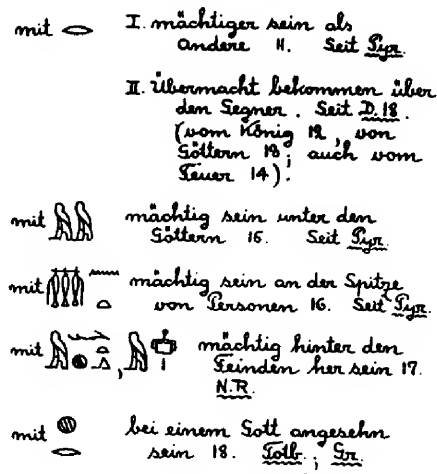 mit 𓂋 I. mächtiger sein als
andere 11. Seit Pyr.
II. Übermacht bekommen über
den Gegner. Seit D.18.
(vom König 12, von
Göttern 13; auch vom
Feuer 14).
mit 𓅓𓅓 mächtig sein unter den
Göttern 15. Seit Pyr.
mit 𓏃𓈖𓏏 mächtig sein an der Spitze
von Personen 16. Seit Pyr.
mit 𓅓 , 𓅓 mächtig hinter den
Feinden her sein 17.
N.R.
mit 𓐍𓂋 bei einem Gott angesehn
sein 18. Totb.; Gr.